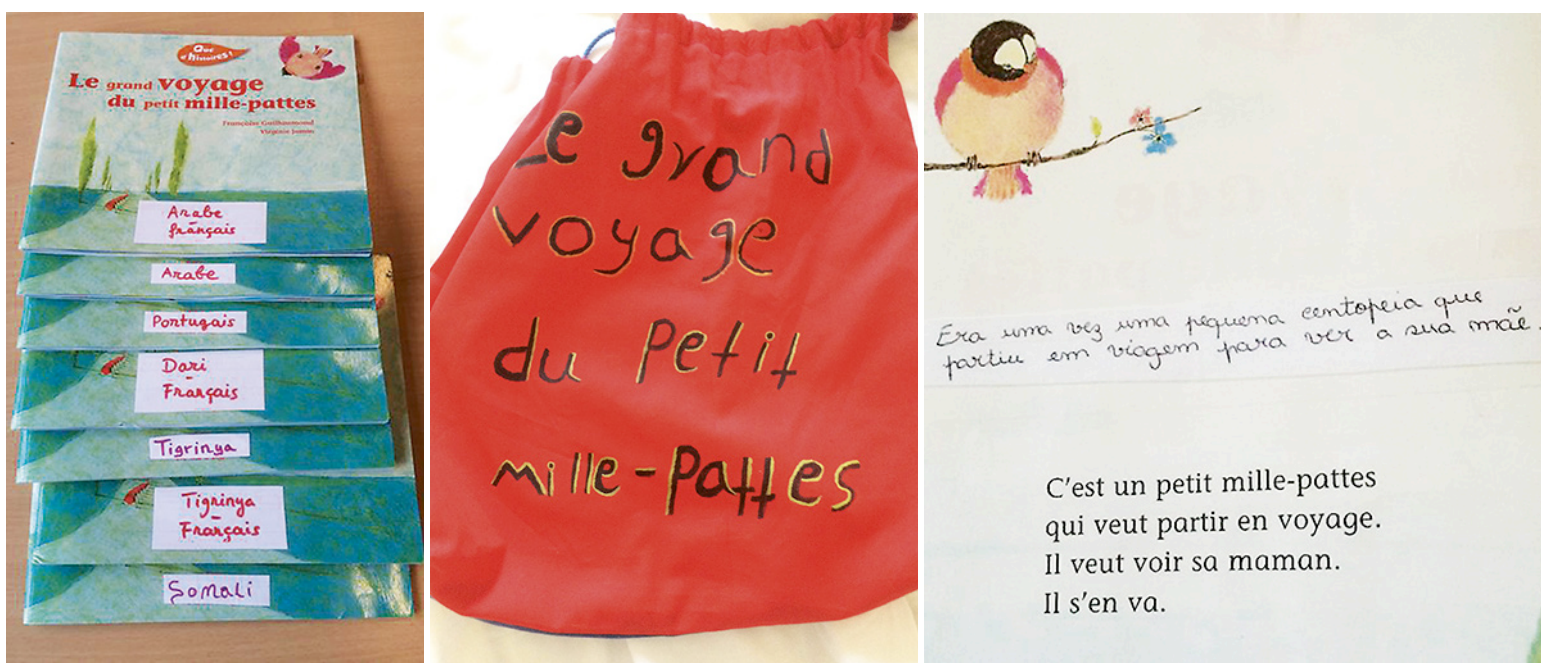 Que
d'histoires!
Le grand voyage
du petit mille-pattes
Françoise Guillaumond
Virginie Sanchez
Arabe
français
Arabe
Portugais
Dari
-
Français
Tigrinya
Tigrinya
-
Français
Somali
Le grand
voyage
du petit
mille-pattes
Era uma vez uma pequena centopeia que
partiu em viagem para ver a sua mãe.
C'est un petit mille-pattes
qui veut partir en voyage.
Il veut voir sa maman.
Il s'en va.